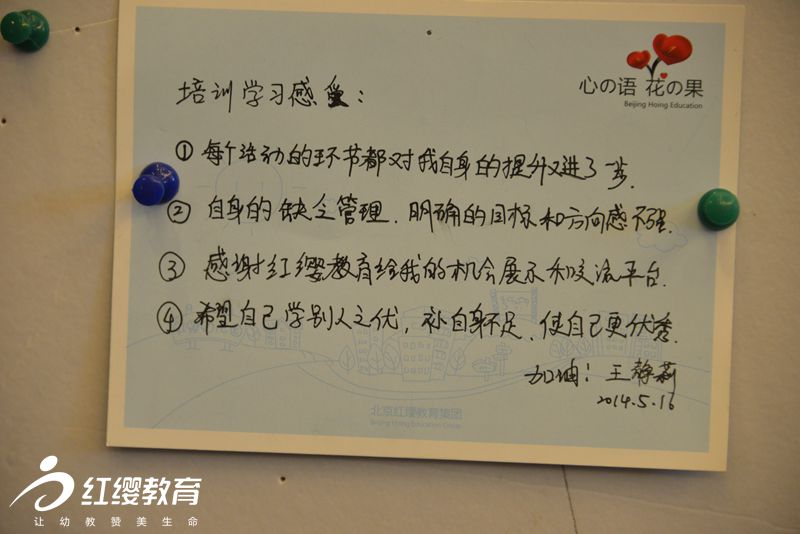 心の语 花の果
Beijing Hoing Education
培训学习感受：
① 每个活动的环节都对我自身的提升又进了一步.
② 自身的缺乏管理、明确的目标和方向感不强.
③ 感谢红缨教育给我的机会展示和交流平台.
④ 希望自己学别人之优，补自身不足、使自己更优秀.
加油！王静莉
2014.5.16
北京红缨教育集团
Beijing Hoing Education Group
红缨教育
让幼教赞美生命